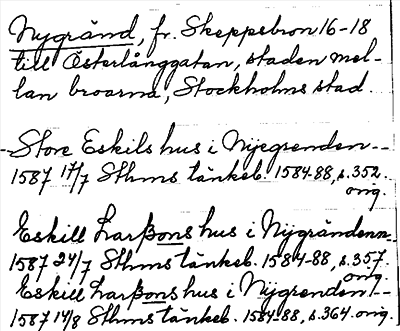 Nygränd, fr. Skeppsbron 16-18
till Österlånggatan, staden mel-
lan broarna, Stockholms stad.
-Store Eskils hus i Nijegrenden--
1587 17/7 Sthms tänkeb. 1584-88, s. 352.
orig.
Eskill Larßons hus i Nijgrändenn--
1587 24/7 Sthms tänkeb. 1584-88, s. 357.
orig.
Eskill Larßons hus i Nijgrenden--
1587 14/8 Sthms tänkeb. 1584-88, s. 364. orig.